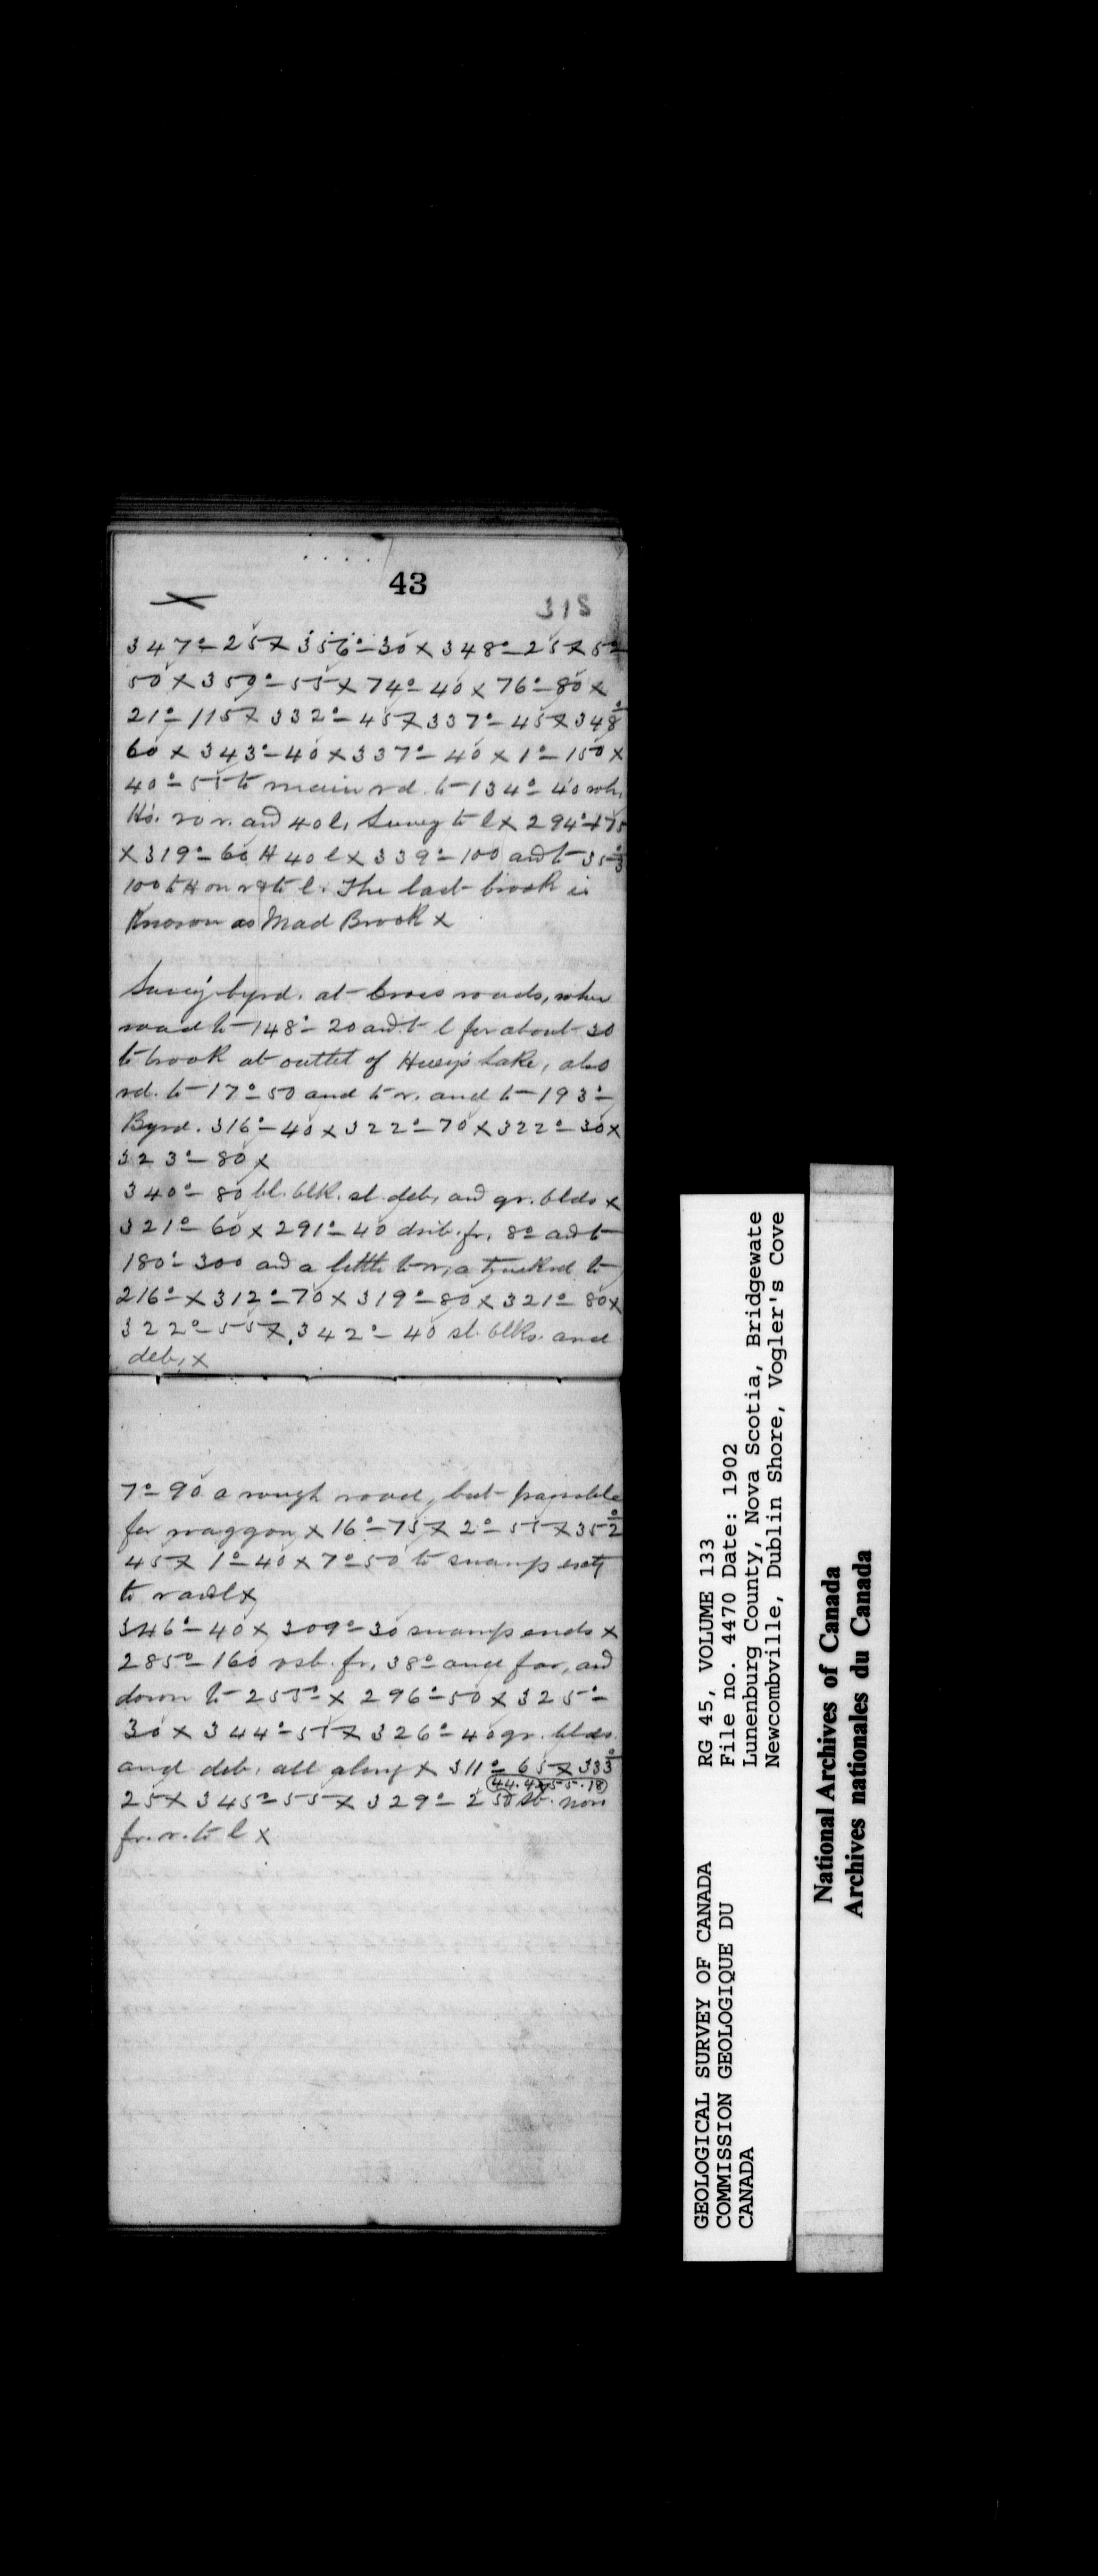 43
318
347°-25 x 356°-30 x 348°-25 x 5°
50 x 359°-55 x 74°-40 x 76°-80 x
21°-115 x 332°-45 x 337°-45 x 348°
60 x 343°-40 x 337°-40 x 1°-150 x
40°-55 to main rd. to 134°-40 wh.
Ho. 20 r. and 40 l. Survey to l x 294°-175
x 319°-60 H 40 l x 339°-100 and to 353°
100 to H on r & to l. The last brook is
Known as Mad Brook x
Survey byrd. at Cross roads, where
road to 148°-20 and to l for about 30
to brook at outlet of Lake, also
rd. to 17°-50 and to r. and to 193°-
Byrd. 316°-40 x 322°-70 x 322°-30 x
323°-80 x
340°-80 bl. blk. sl. deb. and gr. blds x
321°-60 x 291°-40 fr. 8° and to
180°-300 and a little to r, a to
216°- x 312°-70 x 319°-80 x 321°-80 x
322°-55 x 342°-40 sl. blks. and
deb. x
7°-90 a rough road, but passable
for waggon x 16°-75 x 2°-55 x 352°
45 x 1°-40 x 7°-50 to swamp
to r and l x
346°-40 x 309°-30 swamp ends x
285°-160 fr. 38° and far, and
down to 255°- x 296°-50 x 325°-
30 x 344°-55 x 326°-40 gr. blds.
and deb. all along x 311°-65 x 333°
44.4x55.18
25 x 345°-55 x 329°-250 now
fr. r. to l x
GEOLOGICAL SURVEY OF CANADA
COMMISSION GEOLOGIQUE DU
CANADA
RG 45, VOLUME 133
File no. 4470 Date: 1902
Lunenburg County, Nova Scotia, Bridgewate
Newcombville, Dublin Shore, Vogler's Cove
National Archives of Canada
Archives nationales du Canada